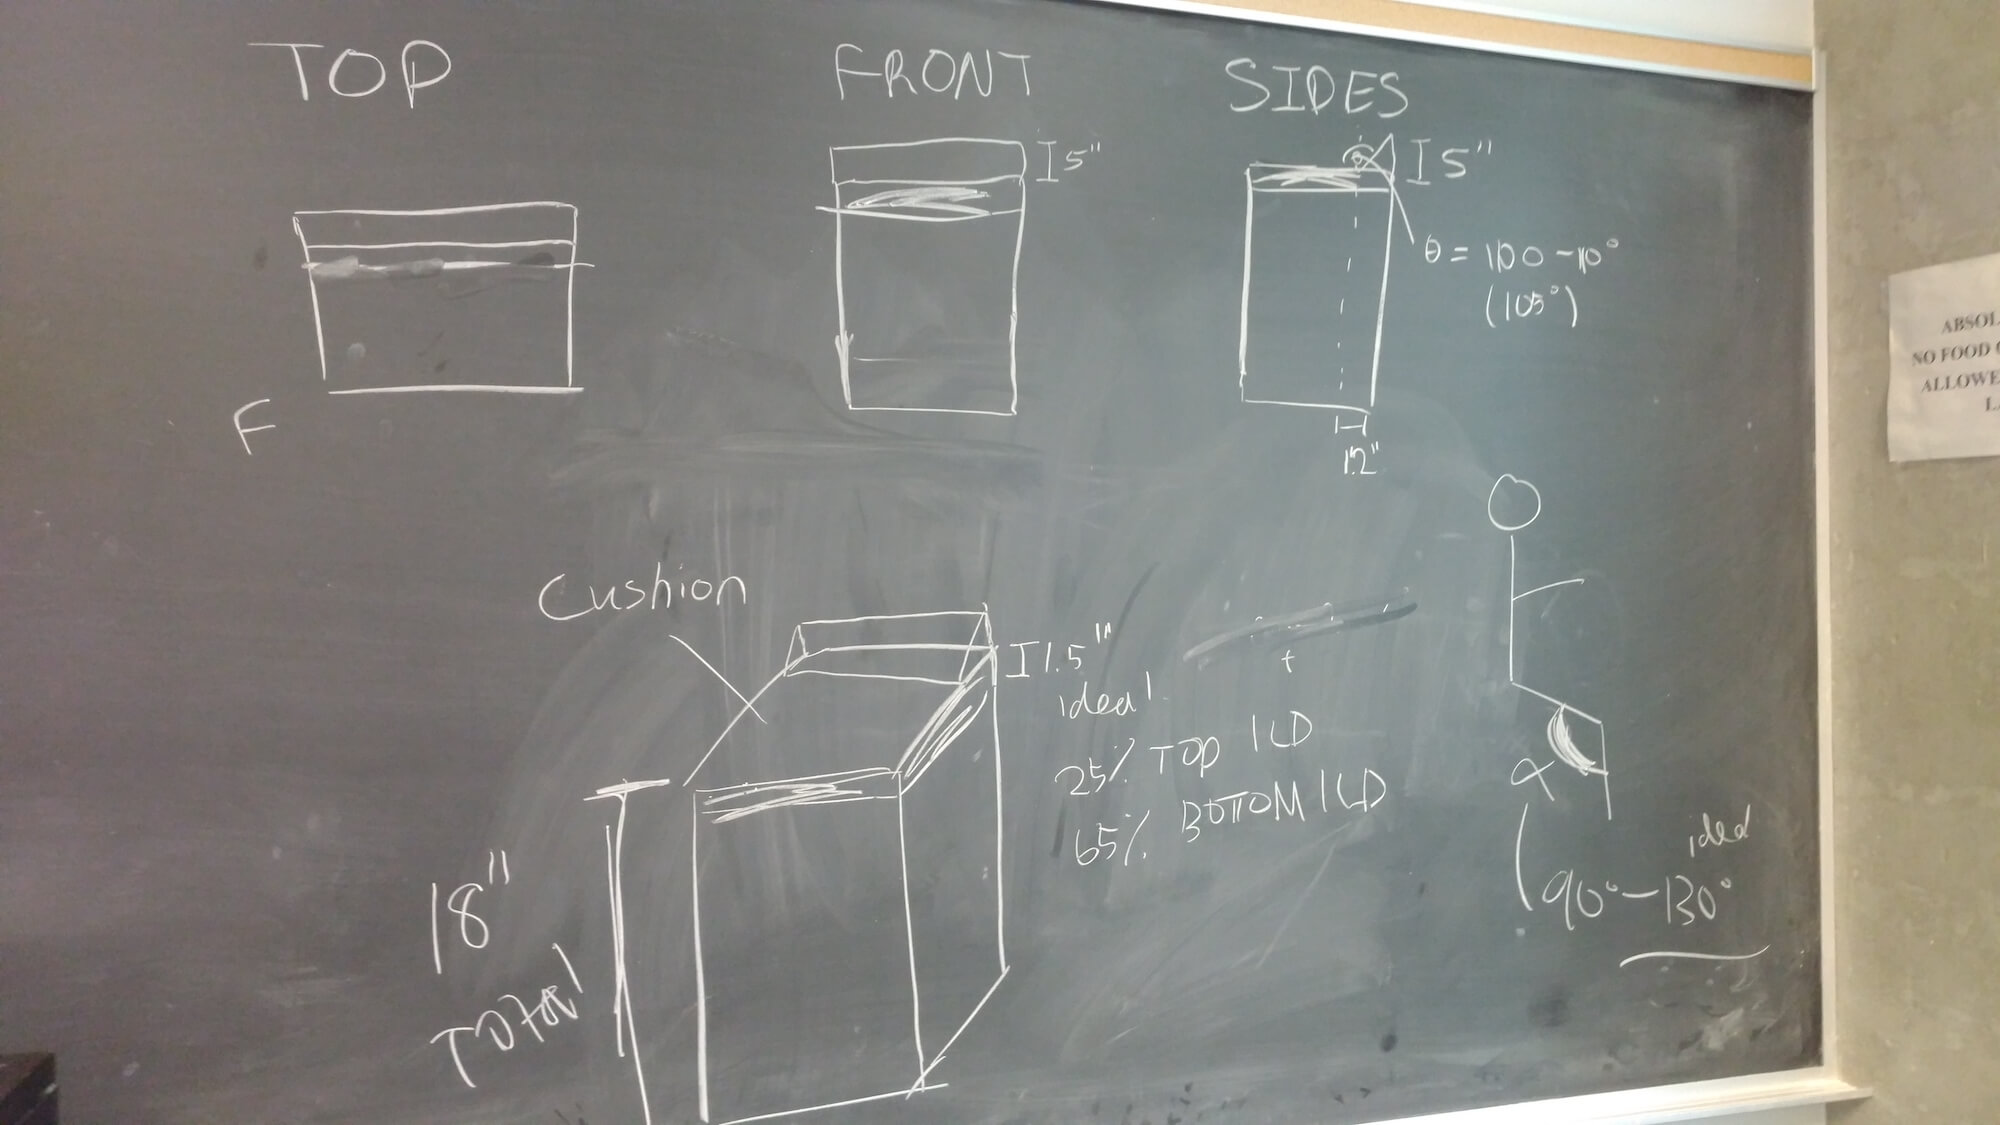 TOP
FRONT
SIDES
5"
5"
θ = 100-110°
(105°)
F
1.2"
Cushion
1.5"
ideal
25% TOP ILD
65% BOTTOM ILD
18"
TOTal
α
ideal
90°-130°
ABSOL
NO FOOD
ALLOWE
L